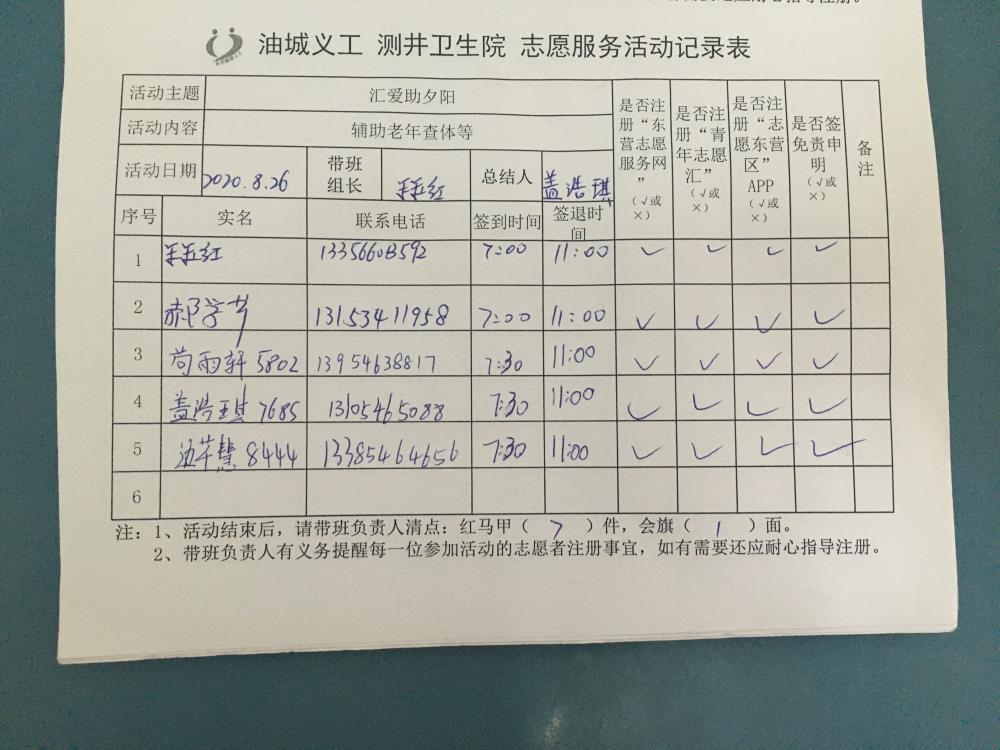 油城义工 测井卫生院 志愿服务活动记录表
活动主题 汇爱助夕阳
活动内容 辅助老年查体等
活动日期 2020.8.26 带班组长 总结人 盖浩琪
是否注册“东营志愿服务网”(√或×) 是否注册“青年志愿汇”(√或×) 是否注册“志愿东营区”APP(√或×) 是否签免责申明(√或×) 备注
序号 实名 联系电话 签到时间 签退时间
1 7:00 11:00 ✓ ✓ ✓ ✓
2 郝学芹 13153411958 7:00 11:00 ✓ ✓ ✓ ✓
3 苟雨轩 5802 13954638817 7:30 11:00 ✓ ✓ ✓ ✓
4 盖浩琪 7685 13105465088 7:30 11:00 ✓ ✓ ✓ ✓
5 8444 13385464656 7:30 11:00 ✓ ✓ ✓ ✓
6
注:1、活动结束后,请带班负责人清点:红马甲( 7 )件,会旗( 1 )面。
2、带班负责人有义务提醒每一位参加活动的志愿者注册事宜,如有需要还应耐心指导注册。